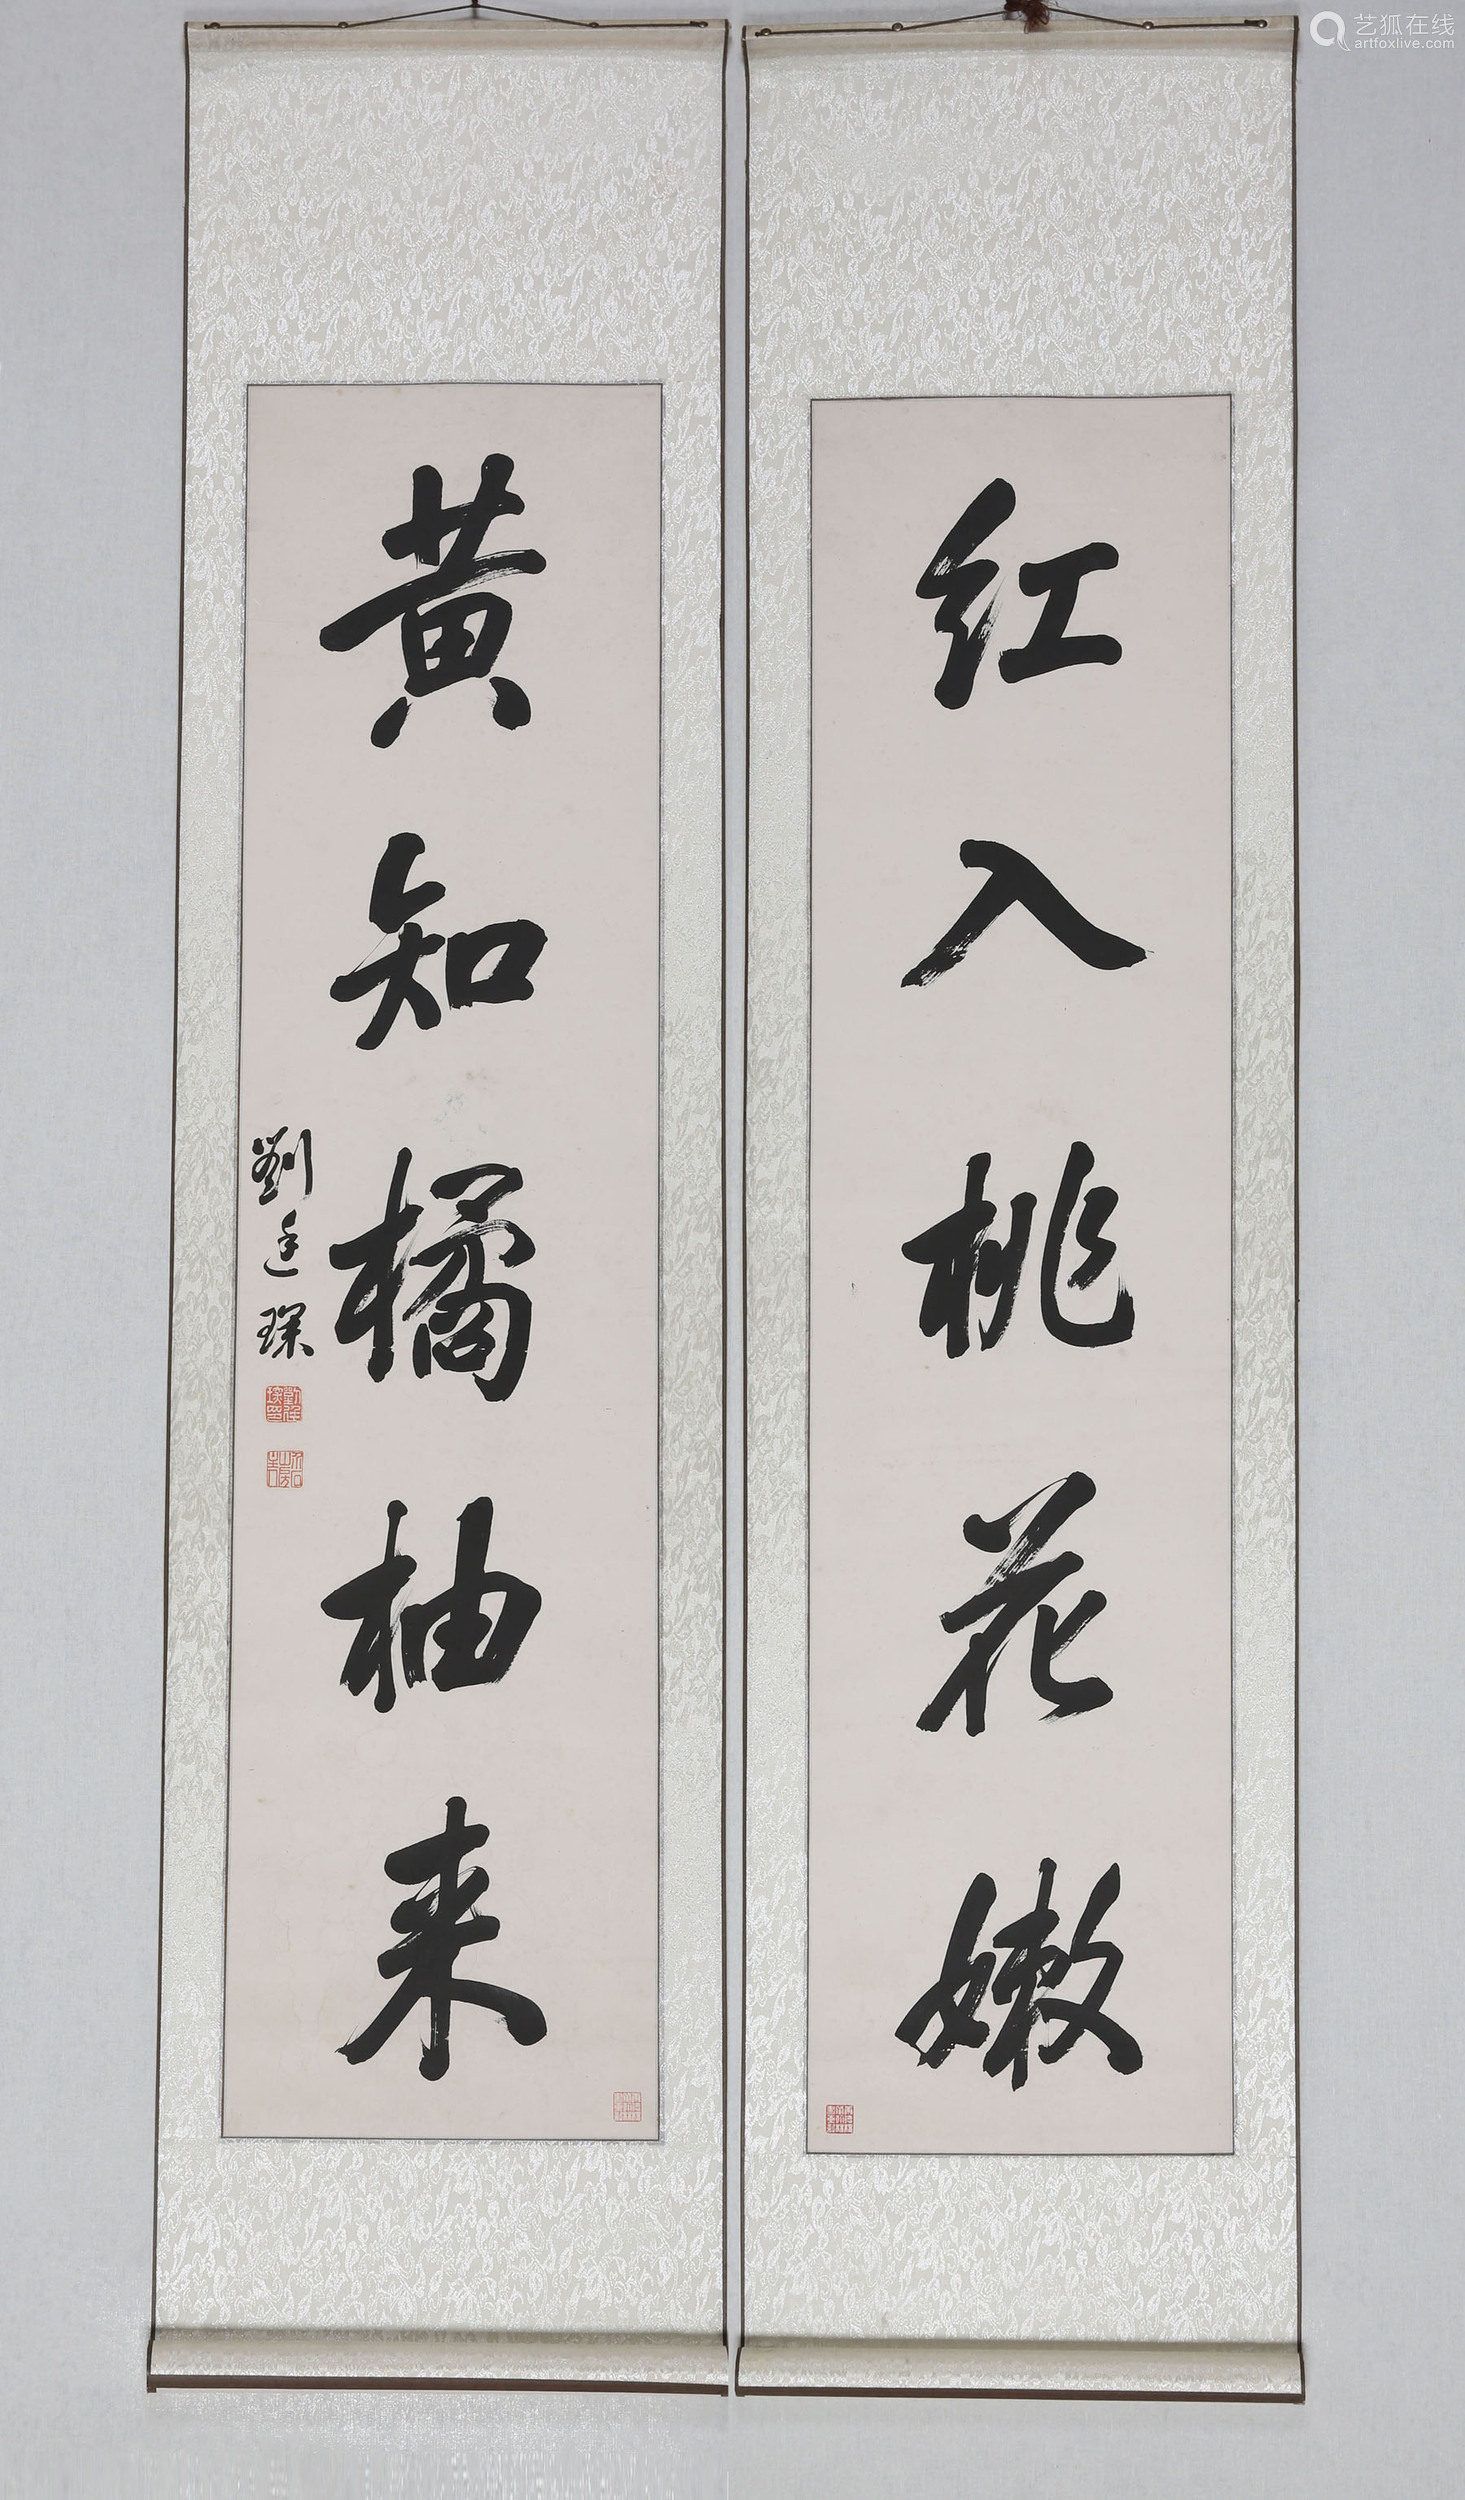 艺狐在线
artfoxlive.com
红入桃花嫩
黄知橘柚来
劉廷琛